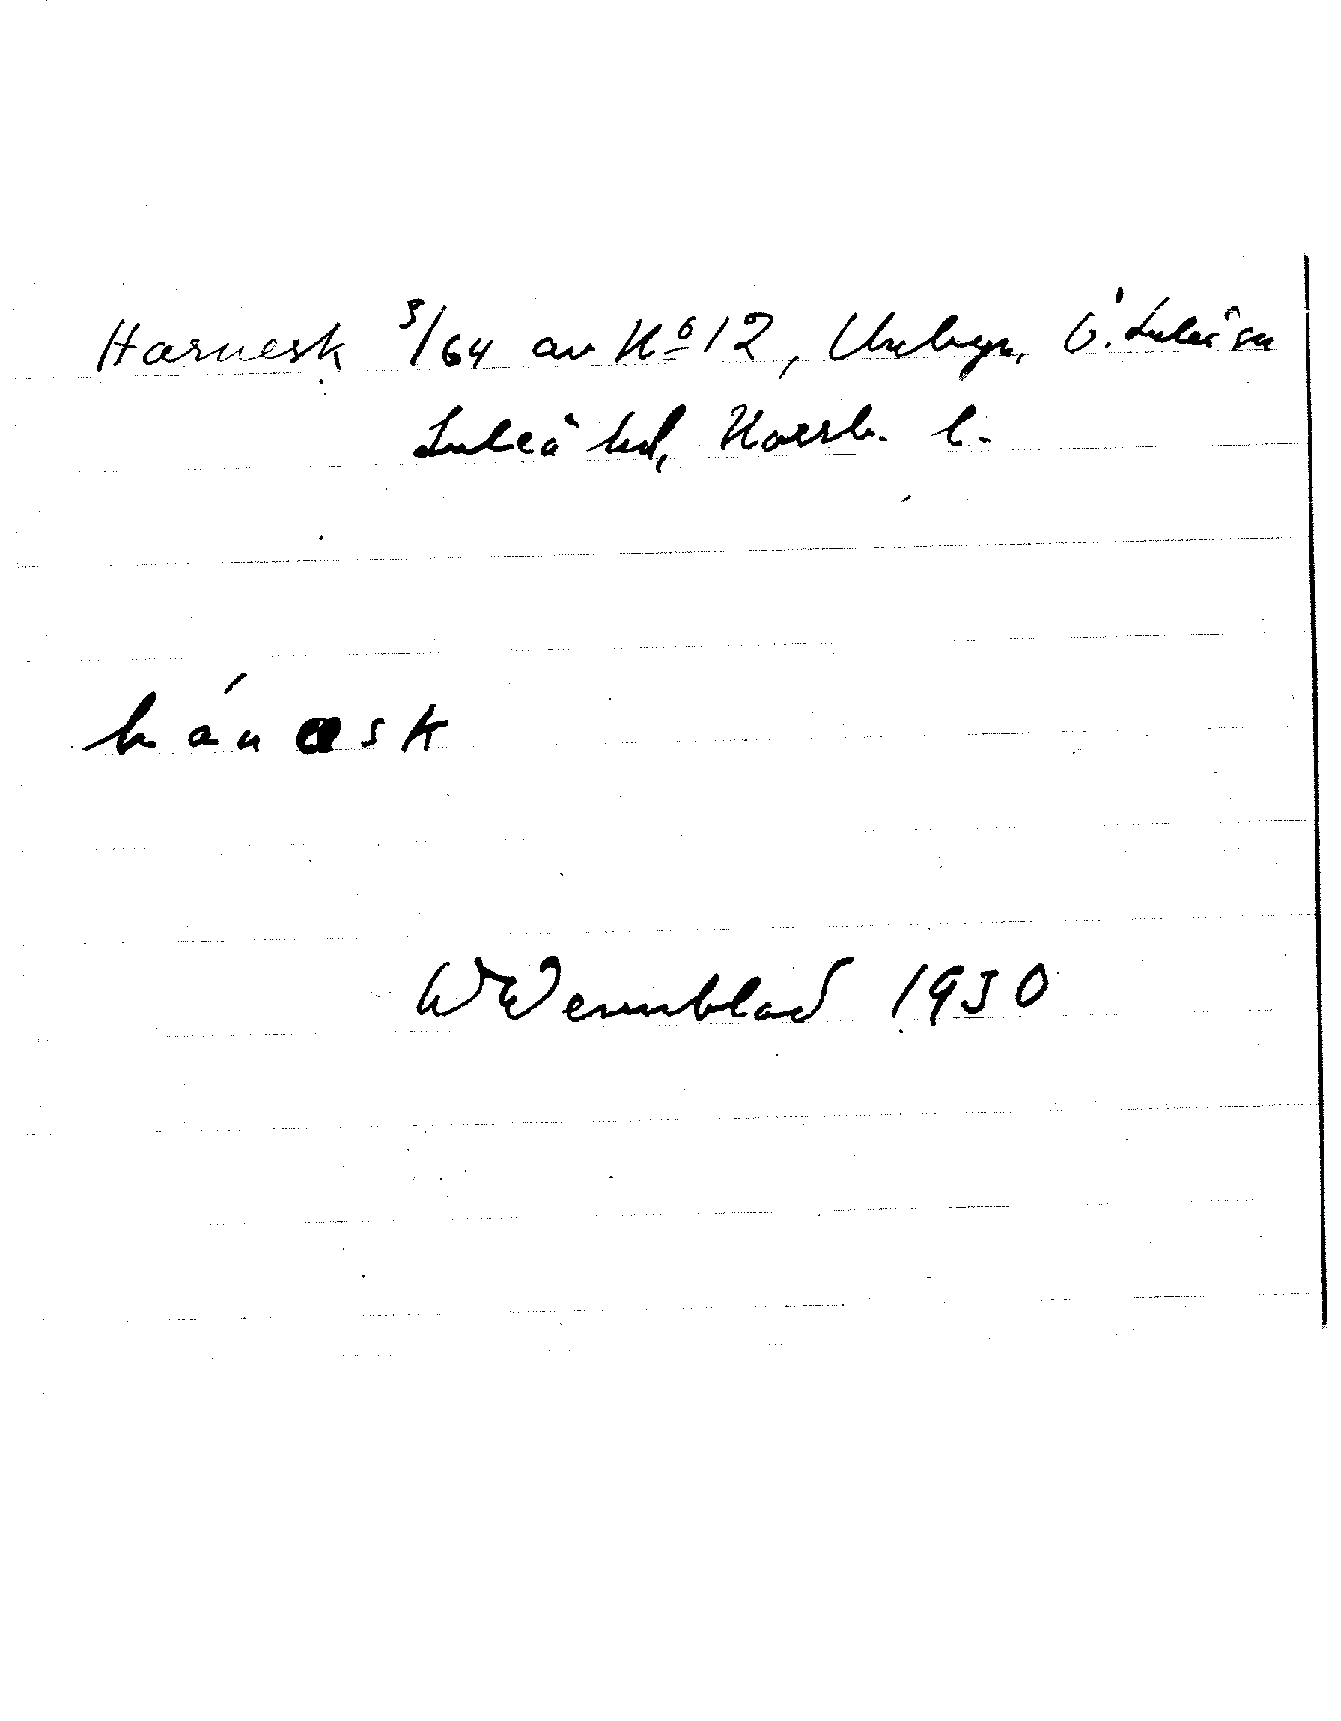 Harnesk 3/64 av No 12, Unbyn, Ö. Luleå sn
Luleå hd, Norrb. l.
hánask
W Wennblad 1930